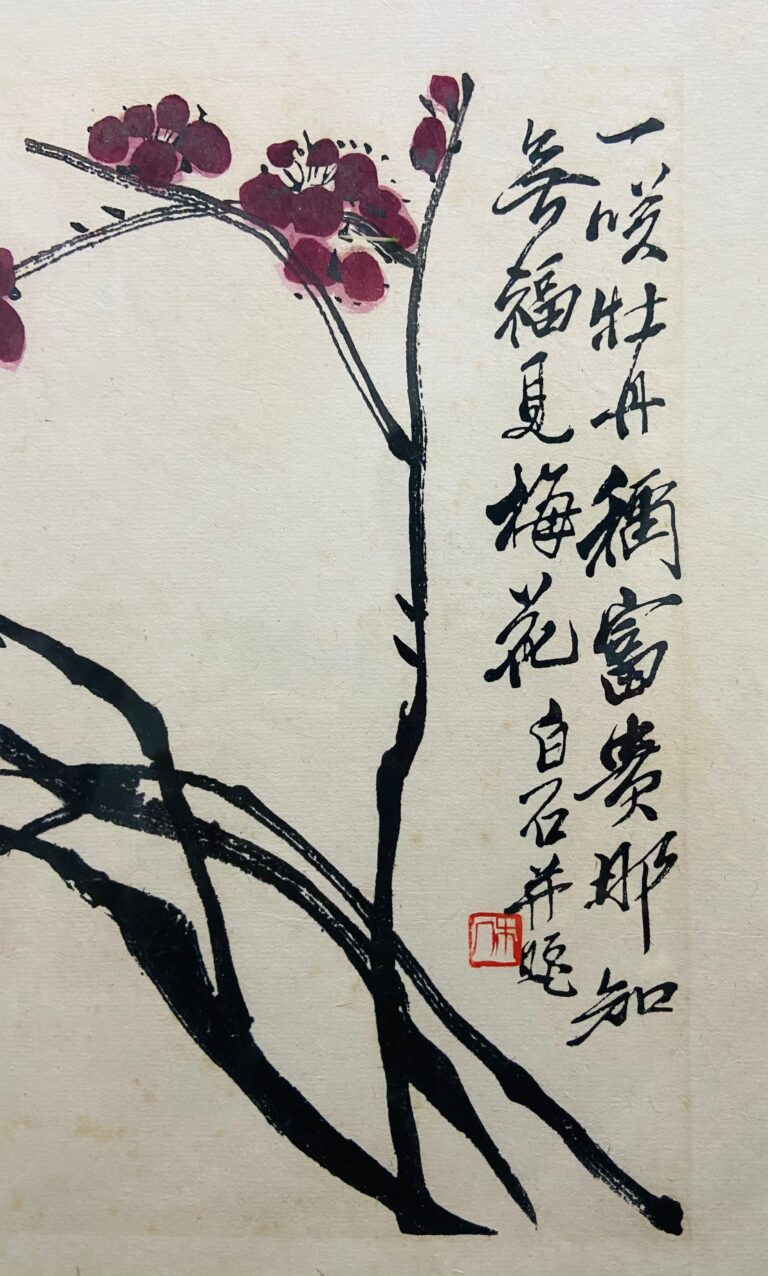 一咲牡丹稱富貴那知
無福見梅花 白石并題
木人